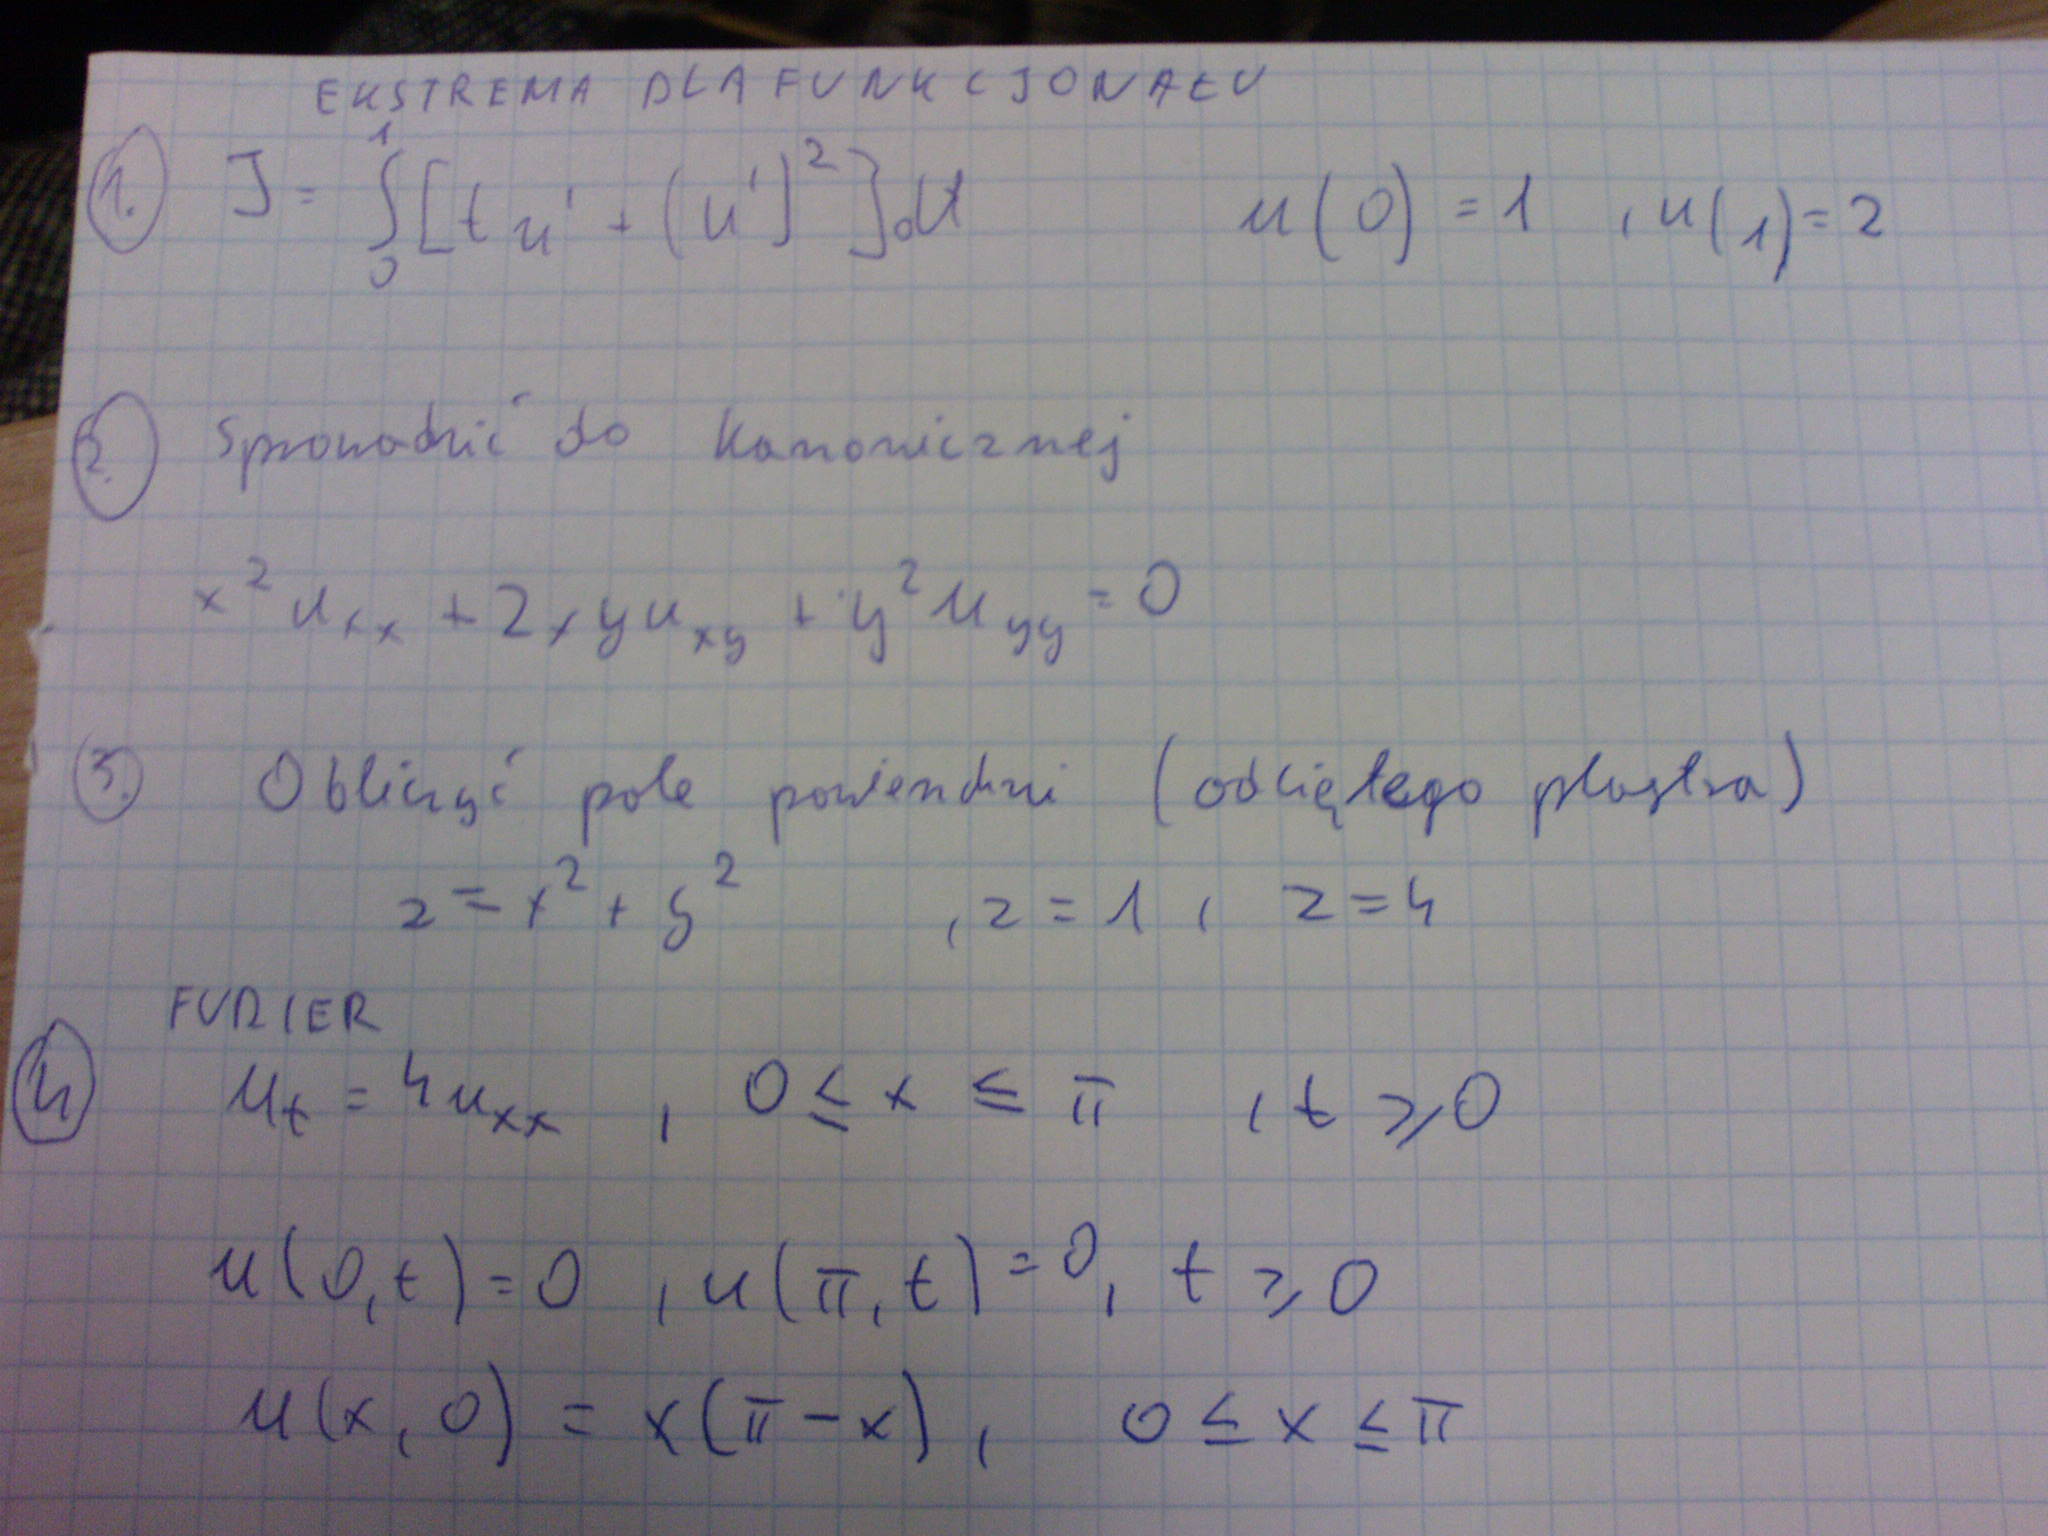 EKSTREMA DLA FUNKCJONAŁU
1. J = ∫₀¹ [t u' + (u')²] dt u(0) = 1 , u(1) = 2
2. Sprowadzić do kanonicznej
x² u_xx + 2xy u_xy + y² u_yy = 0
3. Obliczyć pole powierzchni (odciętego plastra)
z = x² + y² , z = 1 , z = 4
FURIER
4. u_t = 4u_xx , 0 ≤ x ≤ π , t ≥ 0
u(0,t) = 0 , u(π,t) = 0, t ≥ 0
u(x,0) = x(π-x), 0 ≤ x ≤ π